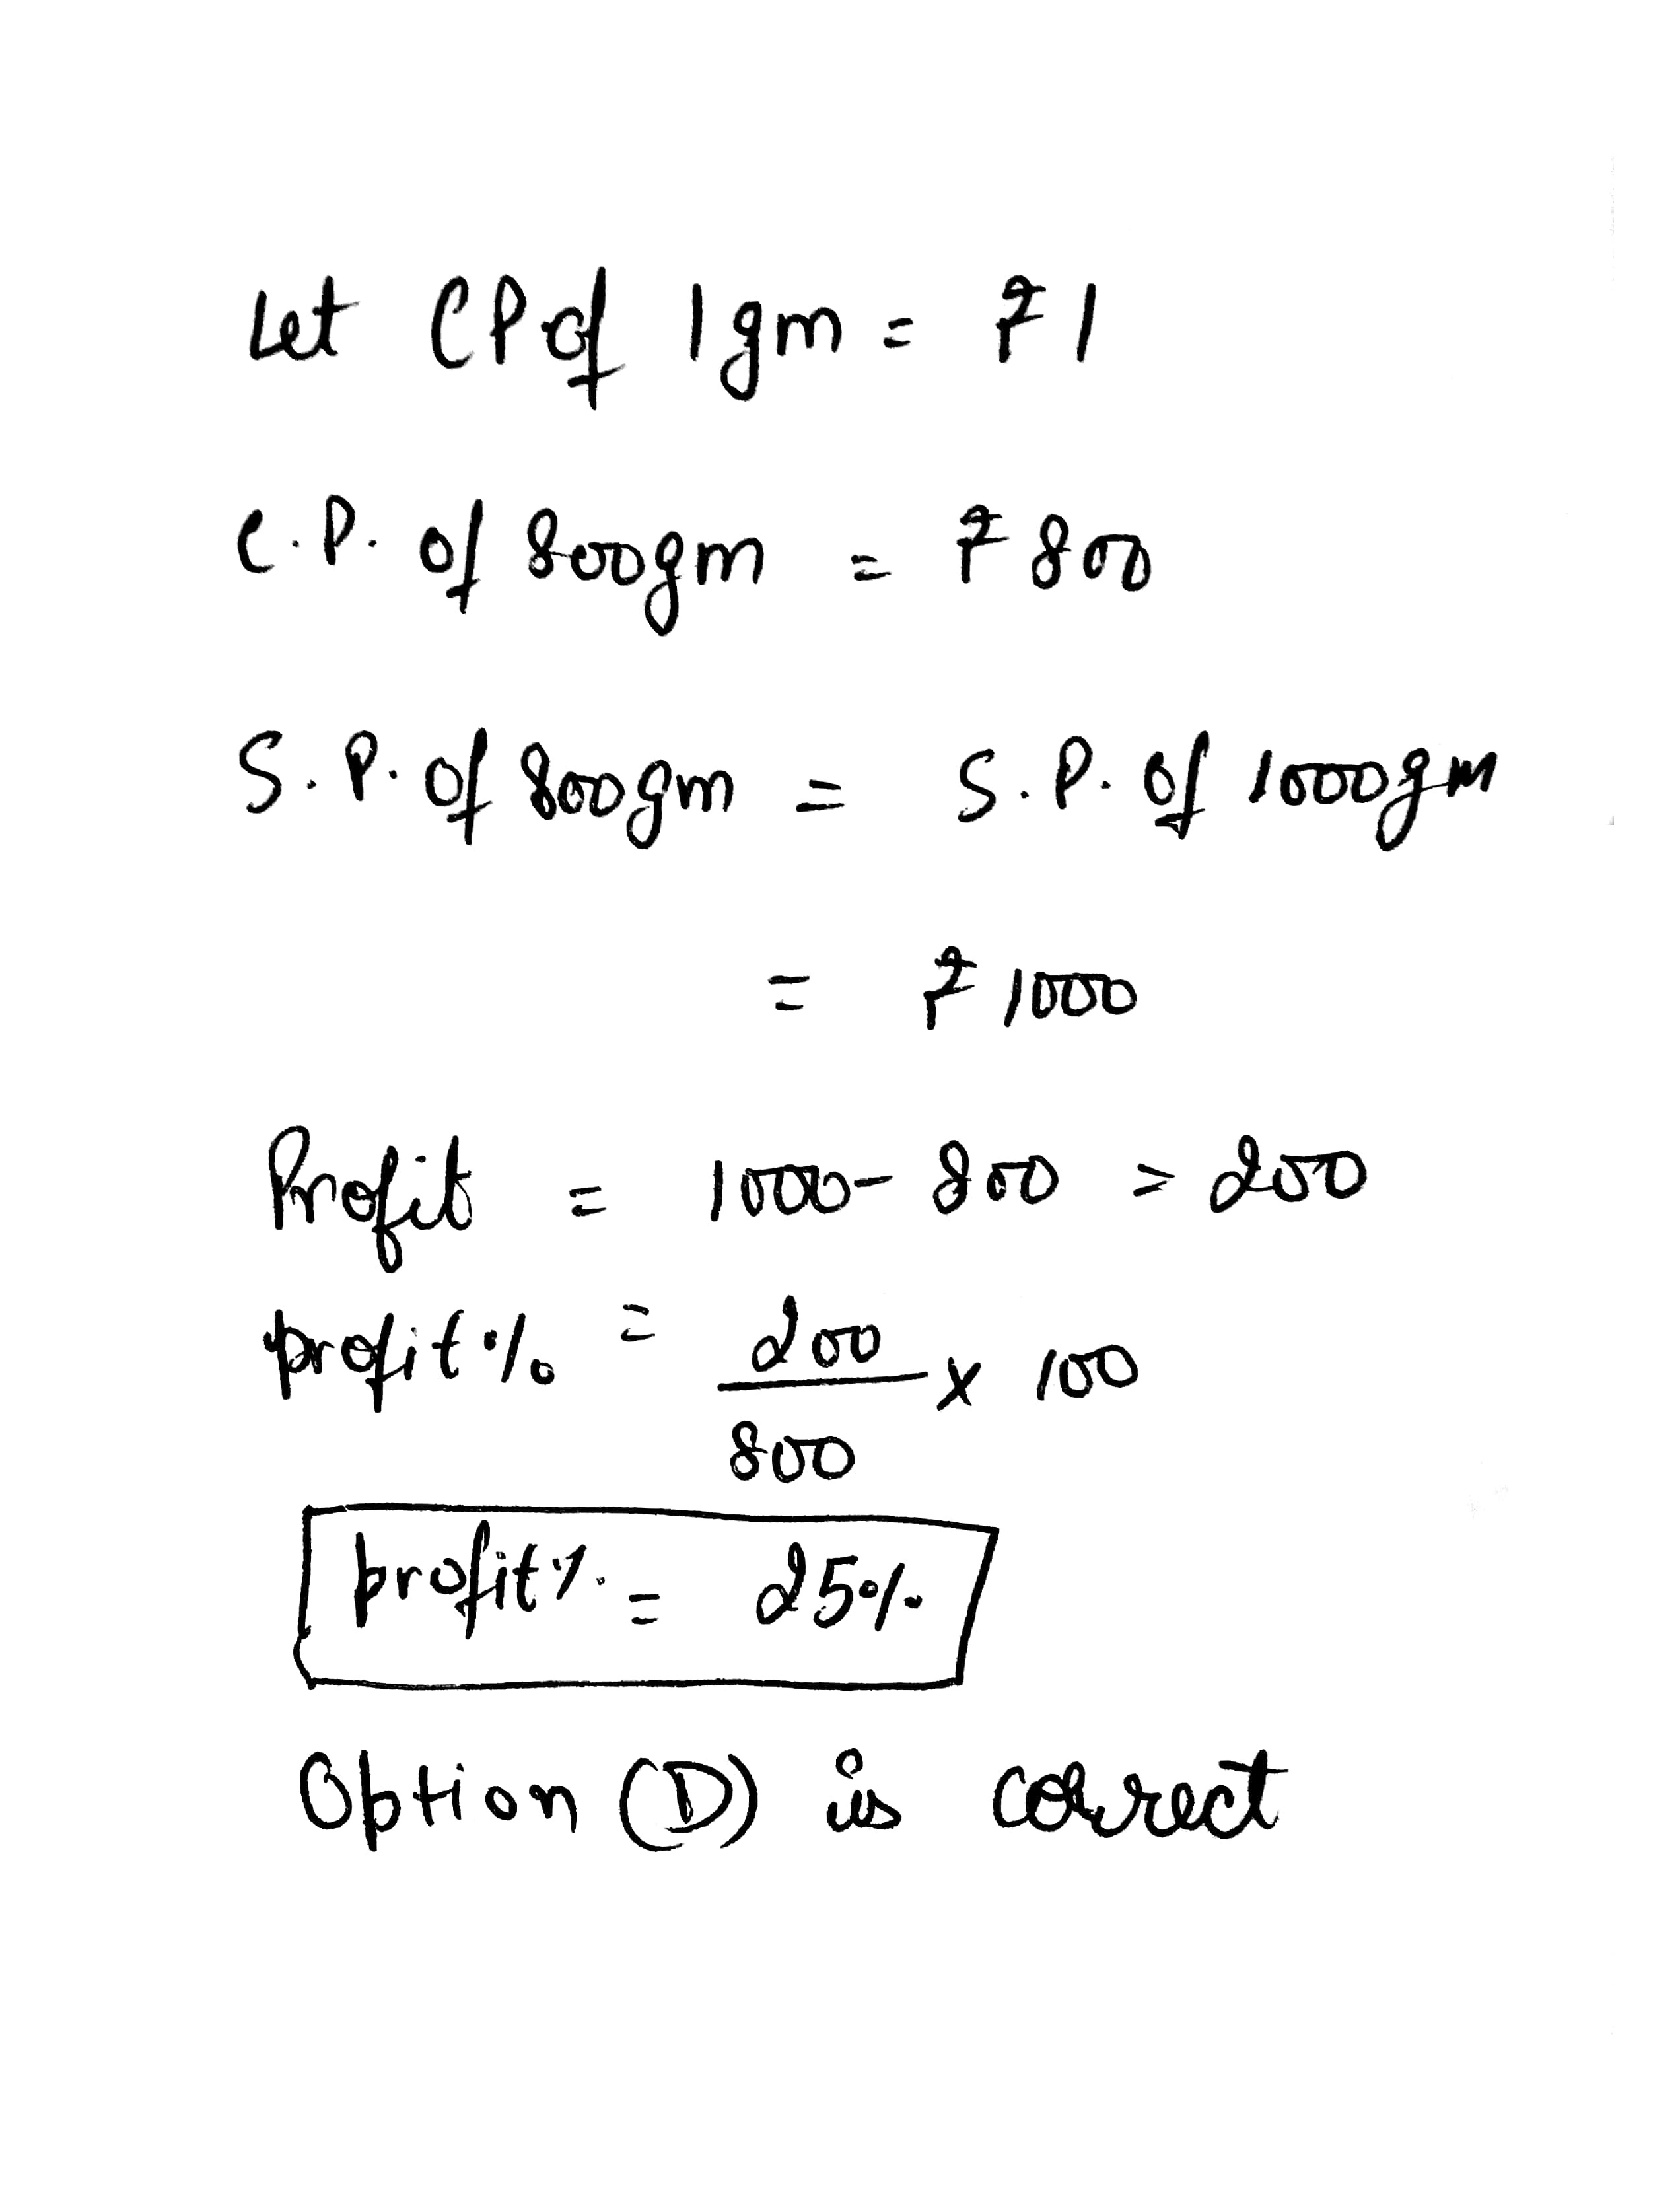 Let CP of 1gm = ₹ 1
C.P. of 800gm = ₹ 800
S.P. of 800gm = S.P. of 1000gm
= ₹ 1000
Profit = 1000 - 800 = 200
profit % = 200/800 x 100
profit % = 25%
Option (D) is correct